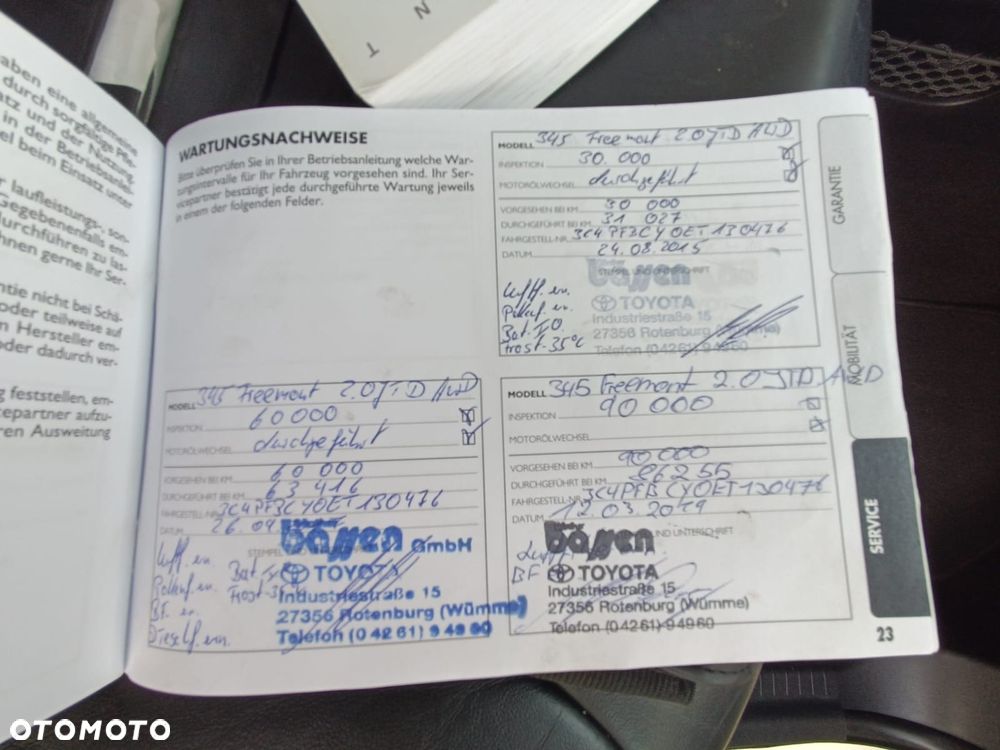 N
T
aben eine allgemeine
durch sorgfältige Pfle-
atz und der Nutzung.
in der Betriebsanlei-
el beim Einsatz unter
r laufleistungs-, son-
Gegebenenfalls em-
durchführen zu las-
hnen gerne Ihr Ser-
ntie nicht bei Schä-
oder teilweise auf
n Hersteller em-
oder dadurch ver-
g feststellen, em-
cepartner aufzu-
ren Ausweitung
WARTUNGSNACHWEISE
Bitte überprüfen Sie in Ihrer Betriebsanleitung welche War-
tungsintervalle für Ihr Fahrzeug vorgesehen sind. Ihr Ser-
vicepartner bestätigt jede durchgeführte Wartung jeweils
in einem der folgenden Felder.
MODELL 345 Freemont 2.0 JTD AWD
INSPEKTION 30.000
MOTORÖLWECHSEL durchgeführt
VORGESEHEN BEI KM 30 000
DURCHGEFÜHRT BEI KM 31 027
FAHRGESTELL-NR. 3C4PF3CY0ET130476
DATUM 24.08.2015
STEMPEL UND UNTERSCHRIFT
bassen
Luftf. ern.
Pollenf. ern.
Bat. I.O.
Frost -35°C
TOYOTA
Industriestraße 15
27356 Rotenburg (Wümme)
Telefon (04261) 94960
MODELL 345 Freemont 2.0 JTD AWD
INSPEKTION 60000
MOTORÖLWECHSEL durchgeführt
VORGESEHEN BEI KM 60 000
DURCHGEFÜHRT BEI KM 63 416
FAHRGESTELL-NR. 3C4PF3CY0ET130476
DATUM 26.09
STEMPEL
bassen GmbH
TOYOTA
Industriestraße 15
27356 Rotenburg (Wümme)
Telefon (04261) 94960
Luftf. ern.
Pollenf. ern.
BF. ern.
Dieself. ern.
MODELL 345 Freemont 2.0 JTD AWD
INSPEKTION 90 000
MOTORÖLWECHSEL
VORGESEHEN BEI KM 90000
DURCHGEFÜHRT BEI KM 86255
FAHRGESTELL-NR. 3C4PFBCY0ET130476
DATUM 12.03.2019
UND UNTERSCHRIFT
bassen
BF
TOYOTA
Industriestraße 15
27356 Rotenburg (Wümme)
Telefon (04261) 94960
GARANTIE
MOBILITÄT
SERVICE
23
OTOMOTO